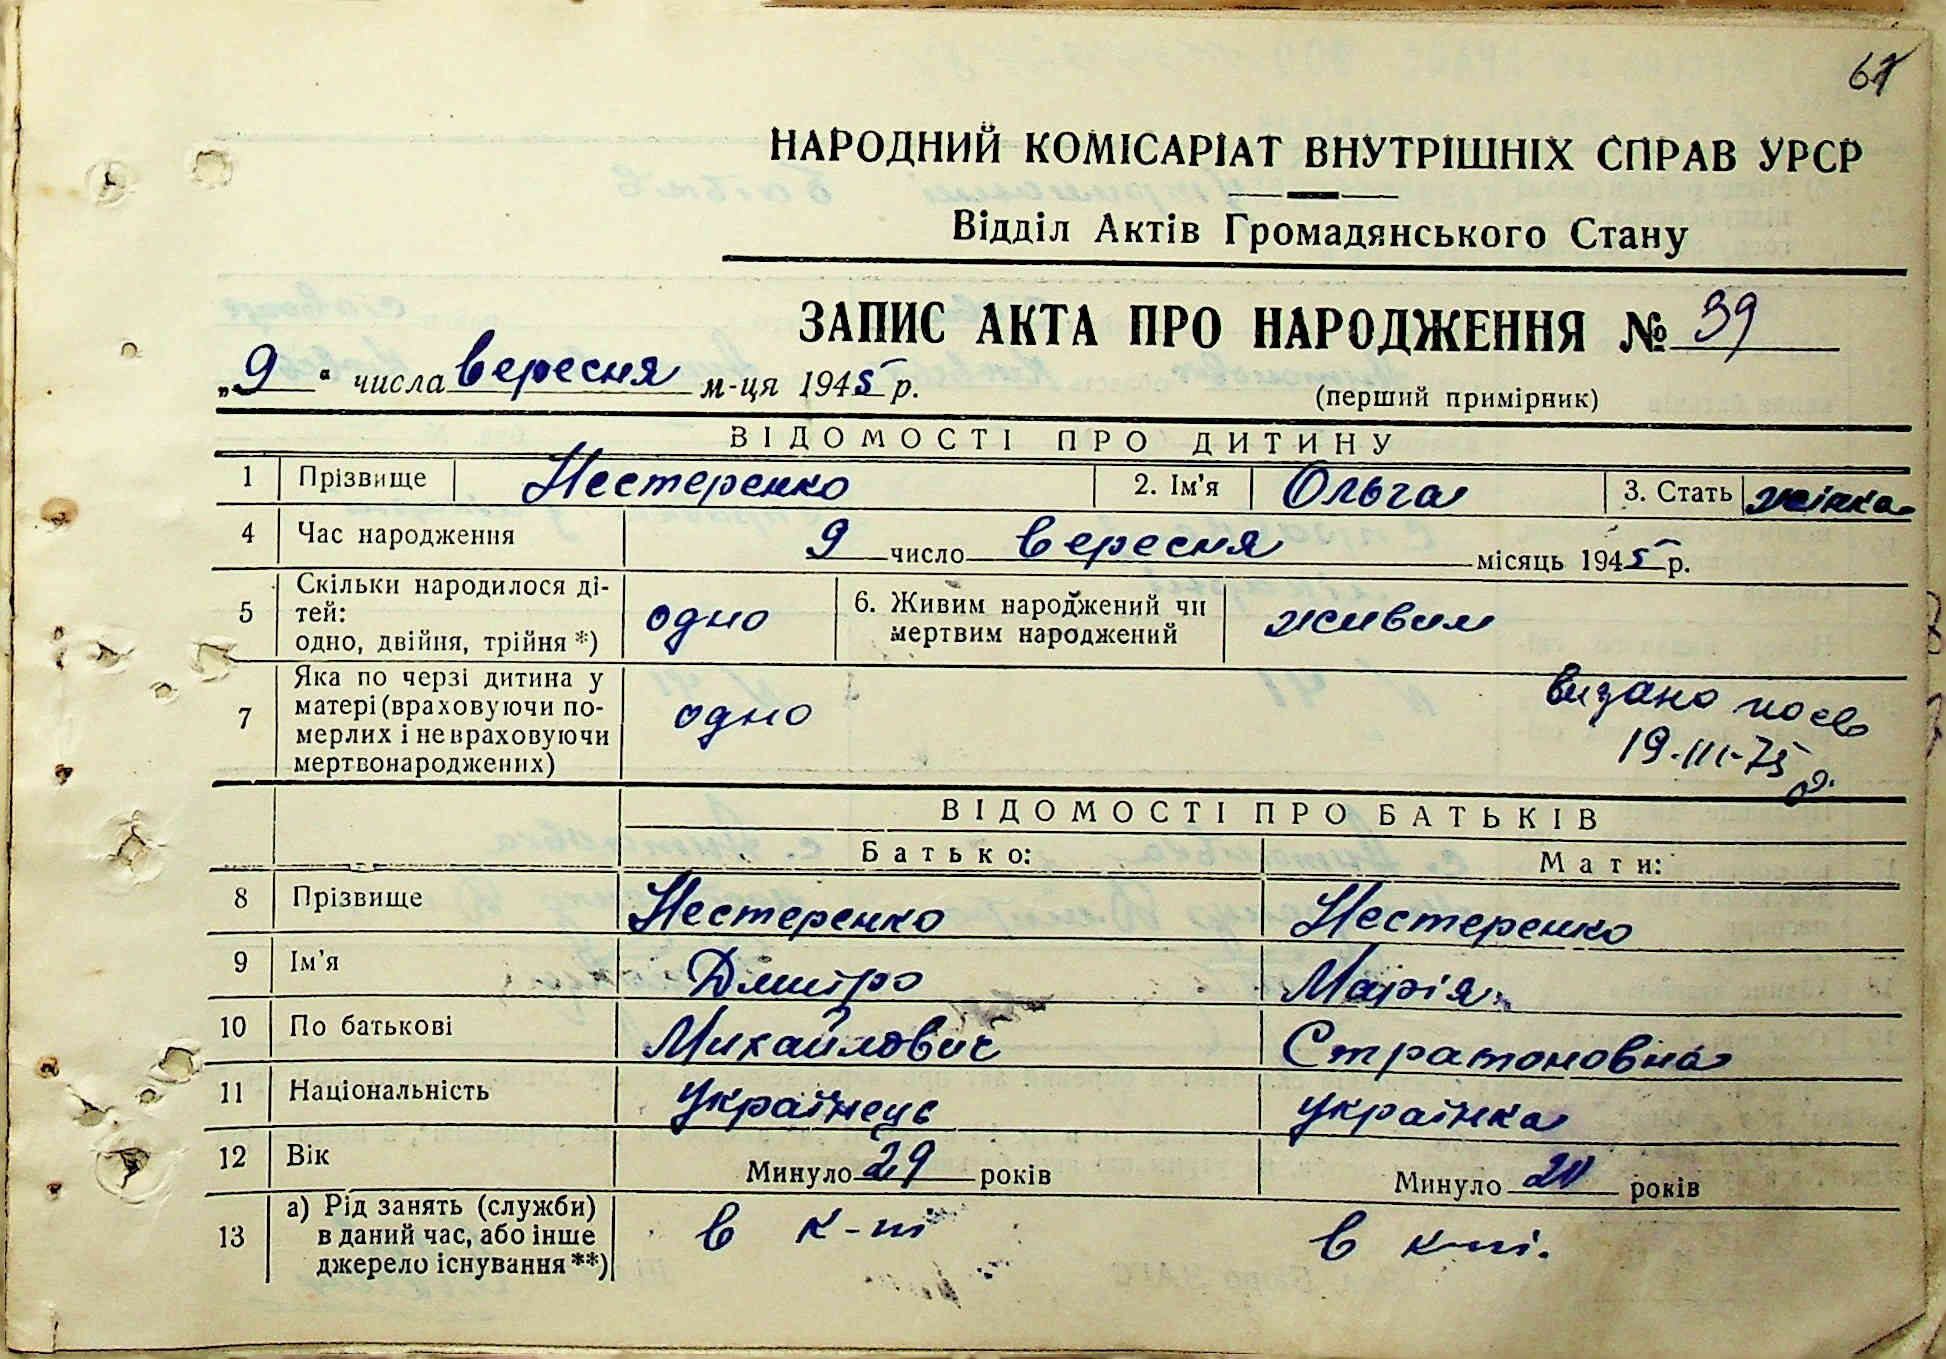 61
НАРОДНИЙ КОМІСАРІАТ ВНУТРІШНІХ СПРАВ УРСР
Відділ Актів Громадянського Стану
ЗАПИС АКТА ПРО НАРОДЖЕННЯ № 39
„9“ числа вересня м-ця 1945 р.
(перший примірник)
ВІДОМОСТІ ПРО ДИТИНУ
1 Прізвище Нестеренко 2. Ім'я Ольга 3. Стать жінка
4 Час народження 9 число вересня місяць 1945 р.
5 Скільки народилося ді-
тей:
одно, двійня, трійня *) одно 6. Живим народжений чи
мертвим народжений живим
7 Яка по черзі дитина у
матері (враховуючи по-
мерлих і невраховуючи
мертвонароджених) одно
видано
19-III-75
ВІДОМОСТІ ПРО БАТЬКІВ
Батько: Мати:
8 Прізвище Нестеренко Нестеренко
9 Ім'я Дмитро Марія
10 По батькові Михайлович Стратоновна
11 Національність українець українка
12 Вік Минуло 29 років Минуло років
13 а) Рід занять (служби)
в даний час, або інше
джерело існування **) в к-ті в к-ті.